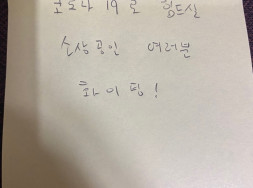 코로나 19 로 힘드실
소상공인 여러분
화이팅!